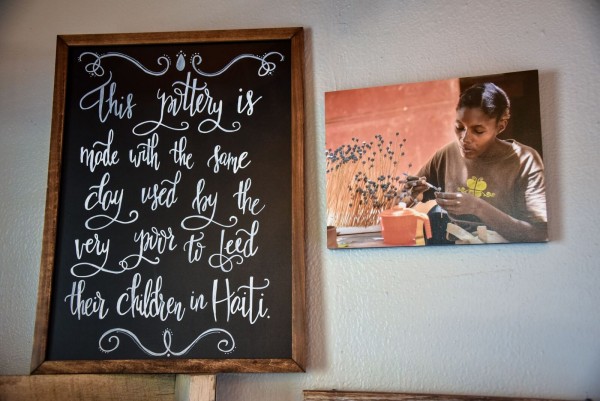 This pottery is
made with the same
clay used by the
very poor to feed
their children in Haiti.